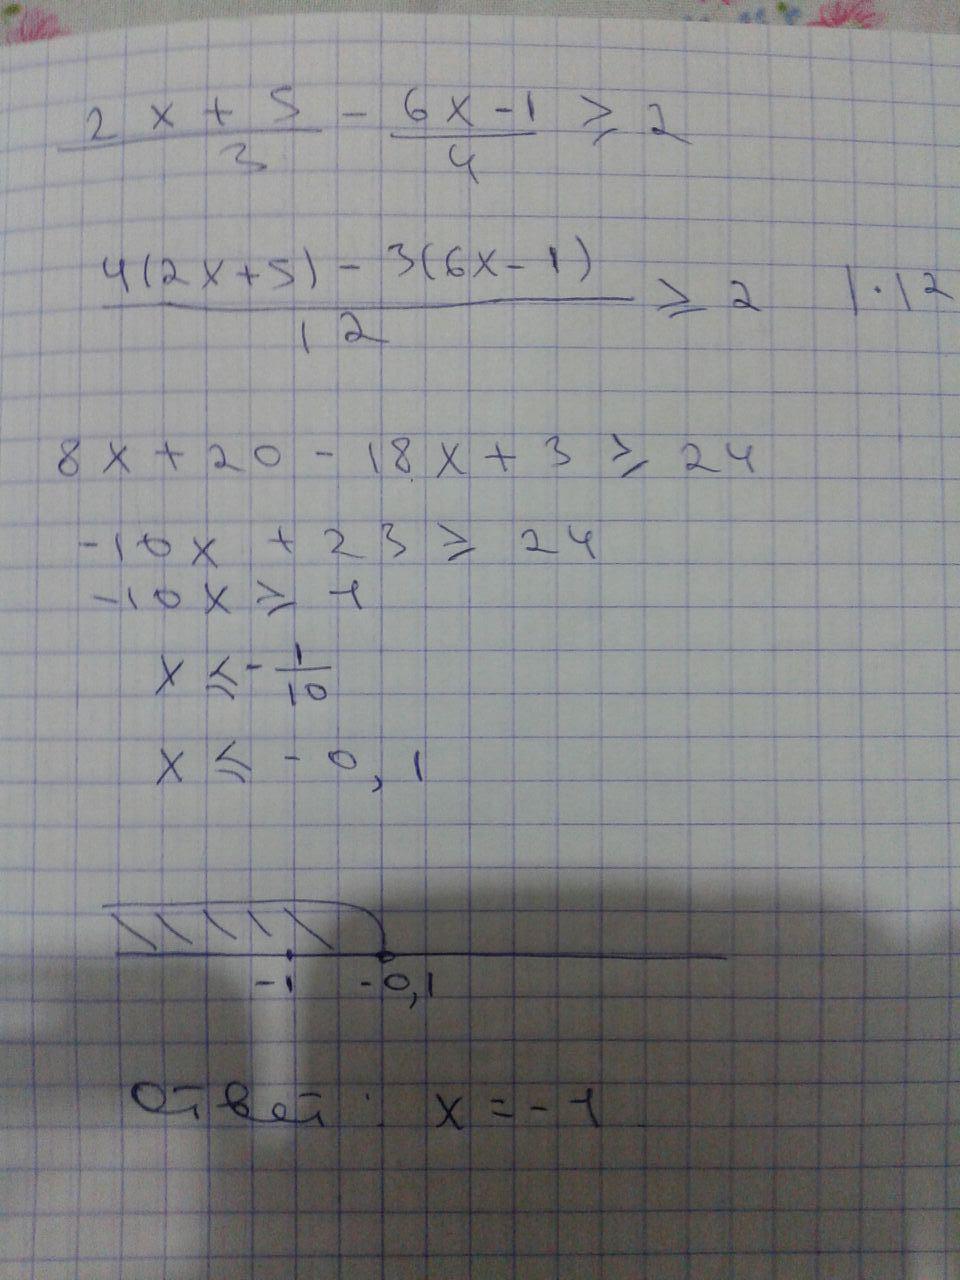 (2x+5)/3 - (6x-1)/4 ≥ 2
(4(2x+5) - 3(6x-1))/12 ≥ 2 |·12
8x+20-18x+3 ≥ 24
-10x + 23 ≥ 24
-10x ≥ 1
x ≤ -1/10
x ≤ -0,1
-1 -0,1
Ответ: x = -1